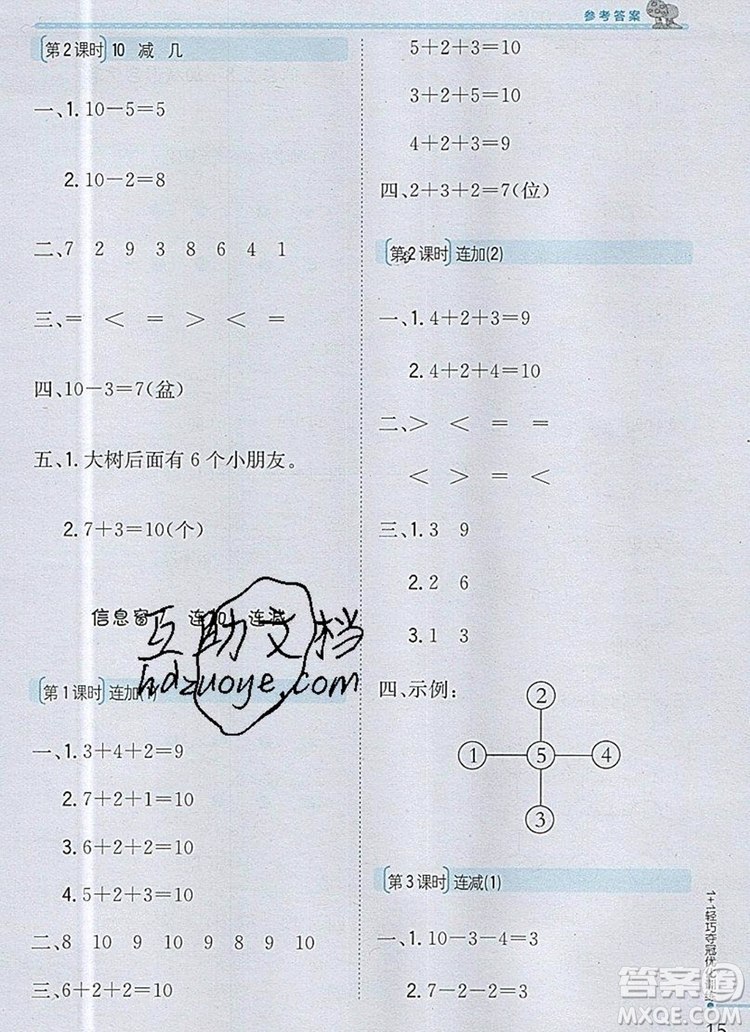 参考答案
第2课时 10 减 几
一、1. 10－5＝5
2. 10－2＝8
二、7 2 9 3 8 6 4 1
三、＝ ＜ ＝ ＞ ＜ ＝
四、10－3＝7(盆)
五、1. 大树后面有 6 个小朋友。
2. 7＋3＝10(个)
信息窗 连加 连减
第1课时 连加(1)
一、1. 3＋4＋2＝9
2. 7＋2＋1＝10
3. 6＋2＋2＝10
4. 5＋2＋3＝10
二、8 10 9 10 9 8 9 10
三、6＋2＋2＝10
5＋2＋3＝10
3＋2＋5＝10
4＋2＋3＝9
四、2＋3＋2＝7(位)
第2课时 连加(2)
一、1. 4＋2＋3＝9
2. 4＋2＋4＝10
二、＞ ＜ ＝ ＝
＜ ＞ ＝ ＜
三、1. 3 9
2. 2 6
3. 1 3
四、示例：
②
① ⑤ ④
③
第3课时 连减(1)
一、1. 10－3－4＝3
2. 7－2－2＝3
1+1轻巧夺冠优化训练
15
互助文档
hdzuoye.com
答案圈
MXQE.COM